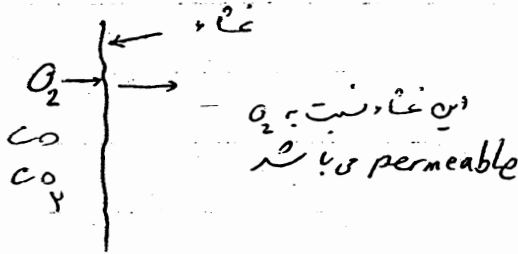 غشاء
O₂
CO
CO₂
این غشاء نسبت به O₂
permeable می باشد